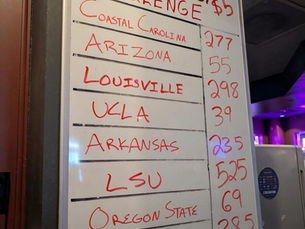 $5
COASTAL CAROLINA 277
ARIZONA 55
LOUISVILLE 298
UCLA 39
ARKANSAS 235
LSU 525
OREGON STATE 69
285